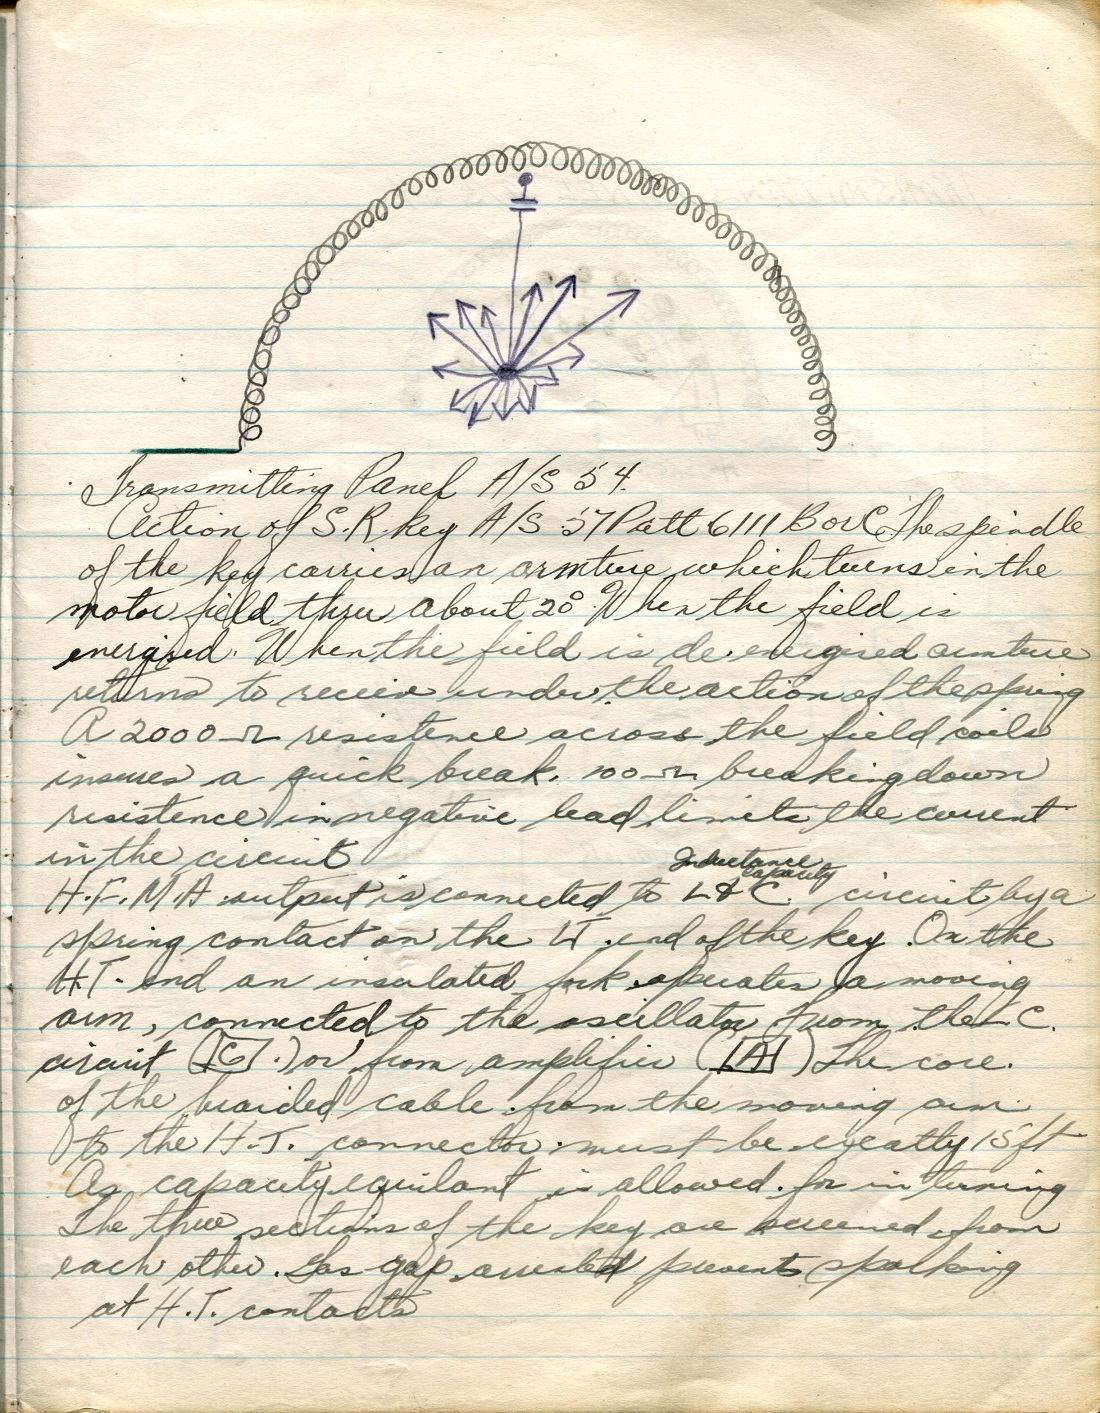 Transmitting Panel A/S 54.
Action of S.R. key A/S 57 Patt 6111 B or C The spindle
of the key carries an armture which turns in the
motor field thru about 20° When the field is
energised. When the field is de.energised armture
returns to receive under the action of the spring
A 2000 Ω resistence across the field coils
insures a quick break. 100 Ω breaking down
resistence in negative lead limits the current
in the circuit
Inductance
Capacity
H.F.M.A output is connected to L & C. circuit by a
spring contact on the LT. end of the key. On the
H.T. end an insulated fork operates a moving
arm, connected to the oscillator from the LC.
circuit (C.) or from amplifier (A) The core.
of the braided cable from the moving arm
to the H.T. connector must be exeatly 15 ft
As capacity equilant is allowed for in tuning
The three sections of the key are screened from
each other. Gas gap prevents sparking
at H.T. contacts